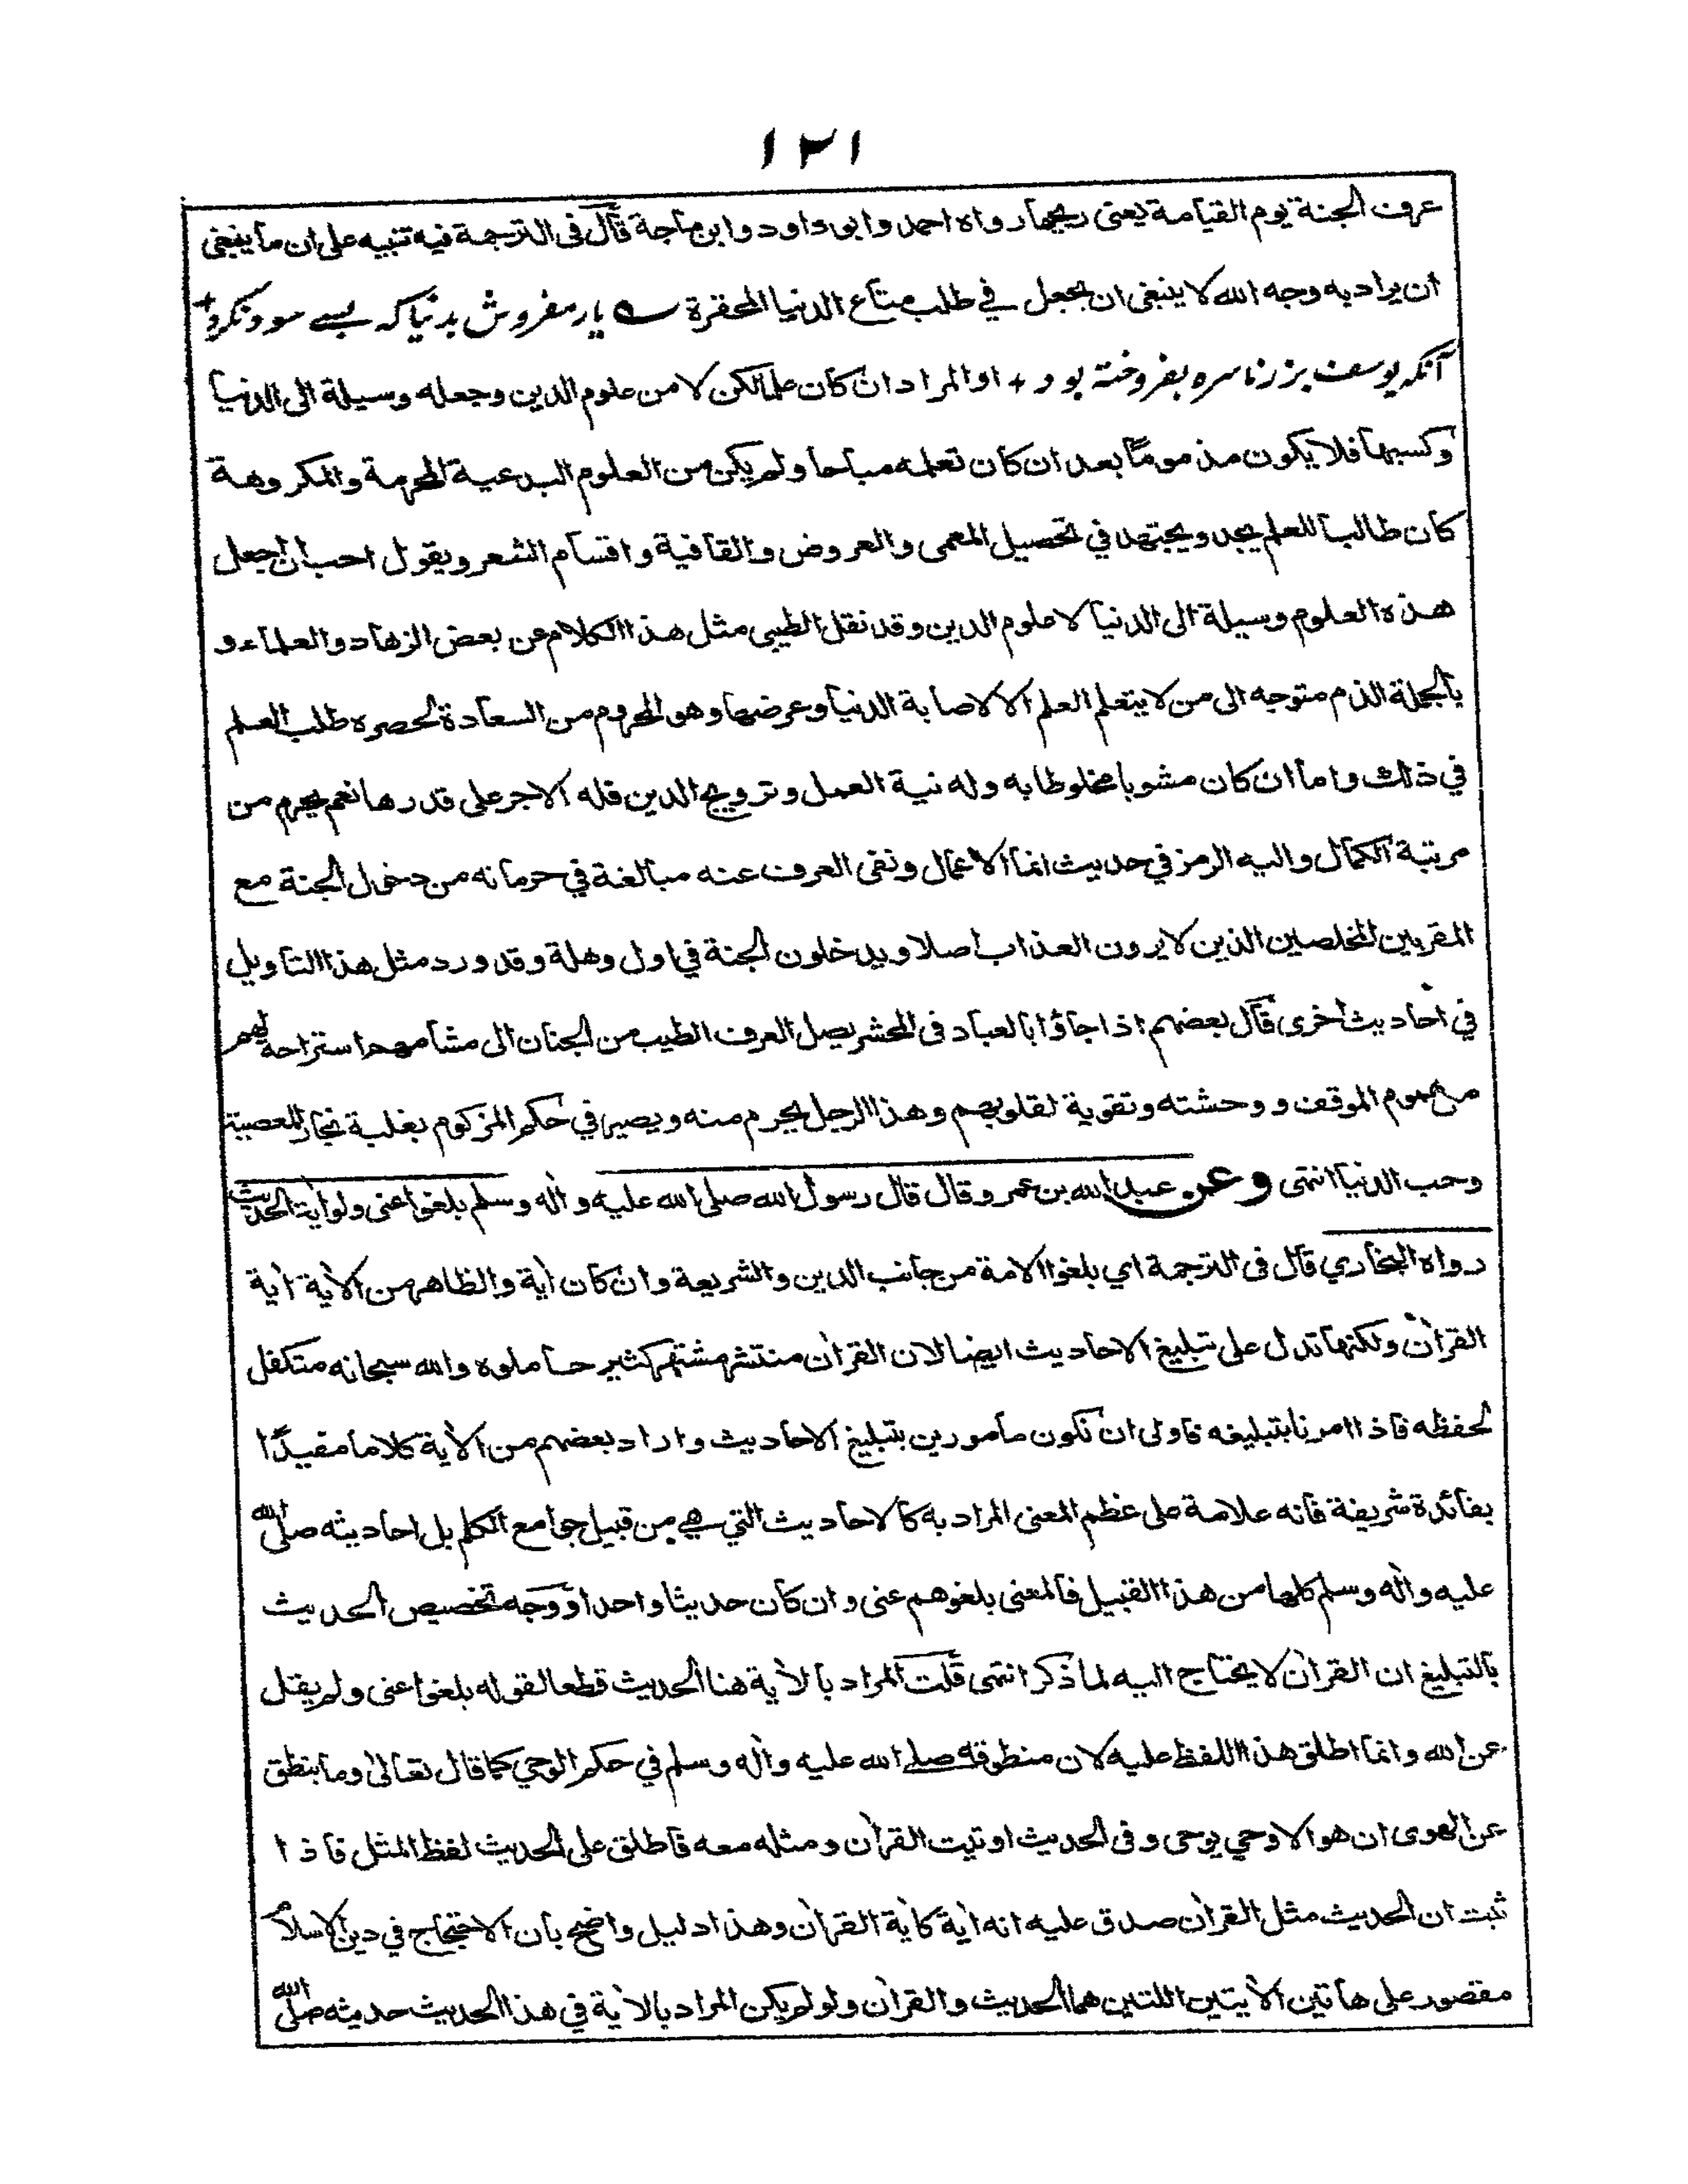 ١٢١
عرف الجنة يوم القيامة يعنى ريحها رواه احمد وابو داود وابن ماجة قال فى الترجمة فيه تنبيه على ان ما ينبغى
ان يراد به وجه الله لا ينبغى ان يجعل في طلب متاع الدنيا المحقرة ؎ يار مفروش بدنيا كه بسے سود نكرد +
آنكه يوسف بزر ناسره بفروخته بود + او المراد ان كان علما لكن لا من علوم الدين وجعله وسيلة الى الدنيا
وكسبها فلا يكون مذموما بعد ان كان تعلمه مباحا ولم يكن من العلوم البدعية المحرمة والمكروهة
كان طالبا للعلم يجد ويجتهد في تحصيل المعمى والعروض والقافية واقسام الشعر ويقول احب ان اجعل
هذه العلوم وسيلة الى الدنيا لا علوم الدين وقد نقل الطيبى مثل هذا الكلام عن بعض الزهاد والعلماء و
بالجملة الذم متوجه الى من لا يتعلم العلم الا لاصابة الدنيا وعرضها وهو المحروم من السعادة لحصره طلب العلم
في ذلك واما ان كان مشوبا مخلوطا به وله نية العمل وترويج الدين فله الاجر على قدرها نعم يحرم من
مرتبة الكمال واليه الرمز في حديث انما الاعمال ونفى العرف عنه مبالغة في حرمانه من دخول الجنة مع
المقربين المخلصين الذين لا يرون العذاب اصلا ويدخلون الجنة في اول وهلة وقد ورد مثل هذا التاويل
في احاديث اخرى قال بعضهم اذا جاؤا بالعباد فى المحشر يصل العرف الطيب من الجنان الى مشامهم استراحة لهم
من هموم الموقف ووحشته وتقوية لقلوبهم وهذا الرجل يحرم منه ويصير في حكم المزكوم بغلبة بخار المعصية
وحب الدنيا انتهى وعن عبد الله بن عمرو قال قال رسول الله صلى الله عليه واٰله وسلم بلغوا عنى ولو اٰية الحديث
رواه البخاري قال فى الترجمة اي بلغوا الامة من جانب الدين والشريعة وان كان اٰية والظاهر من الاٰية اٰية
القراٰن ولكنها تدل على تبليغ الاحاديث ايضا لان القراٰن منتشر مشتهر كثير حاملوه والله سبحانه متكفل
لحفظه فاذا امرنا بتبليغه فاولى ان نكون مامورين بتبليغ الاحاديث واراد بعضهم من الاٰية كلاما مفيدًا
بفائدة شريفة فانه علامة على عظم المعنى المراد به كالاحاديث التي هي من قبيل جوامع الكلم بل احاديثه صلى الله
عليه واٰله وسلم كلها من هذا القبيل فالمعنى بلغوهم عنى وان كان حديثا واحدا ووجه تخصيص الحديث
بالتبليغ ان القراٰن لا يحتاج اليه لما ذكر انتهى قلت المراد بالاٰية هنا الحديث قطعا لقوله بلغوا عنى ولم يقل
عن الله وانما اطلق هذا اللفظ عليه لان منطوقه صلے الله عليه واٰله وسلم في حكم الوحي كما قال تعالىٰ وما ينطق
عن الهوى ان هو الا وحي يوحى وفى الحديث اوتيت القراٰن ومثله معه فاطلق على الحديث لفظ المثل فاذا
ثبت ان الحديث مثل القراٰن صدق عليه انه اٰية كاٰية القراٰن وهذا دليل واضح بان الاحتجاج في دين الاسلام
مقصور على هاتين الاٰيتين اللتين هما الحديث والقراٰن ولو لم يكن المراد بالاٰية في هذا الحديث حديثه صلى الله